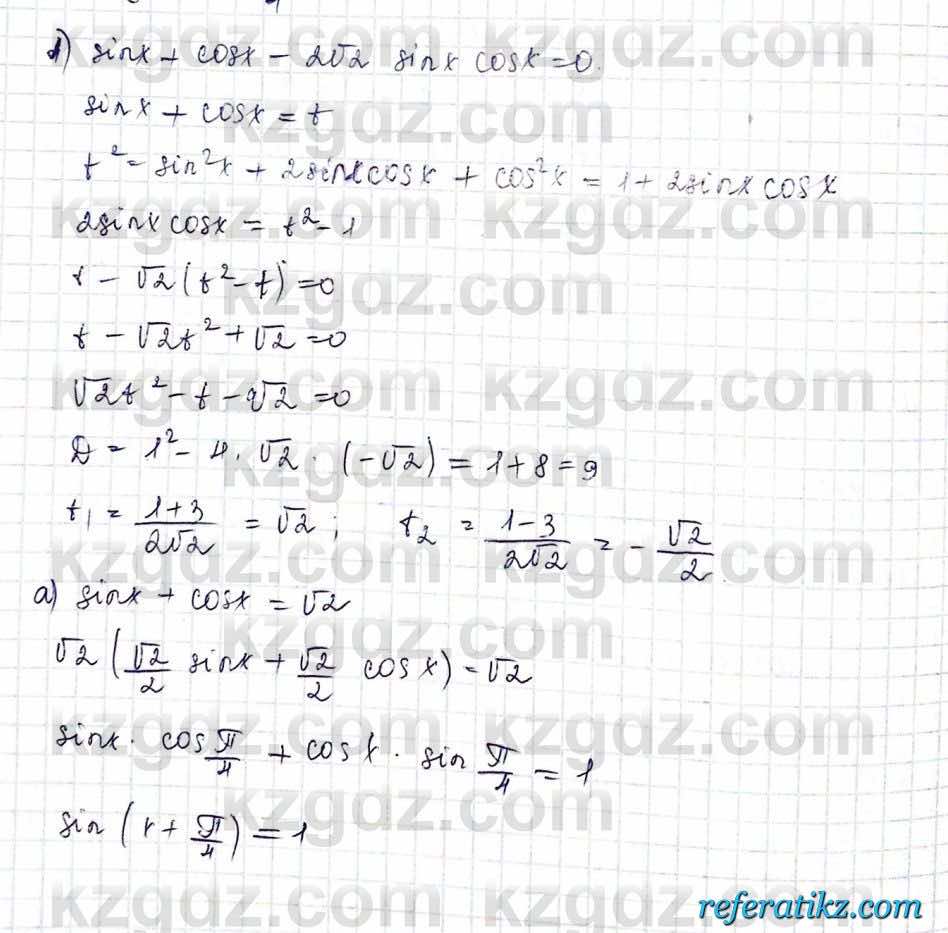 1) sinx + cosx - 2√2 sinx cosx = 0.
sinx + cosx = t
t² = sin²x + 2sinxcosx + cos²x = 1 + 2sinx cosx
2sinx cosx = t² - 1
t - √2(t² - t) = 0
t - √2t² + √2 = 0
√2t² - t - √2 = 0
D = 1² - 4 · √2 · (-√2) = 1 + 8 = 9
t₁ = (1+3)/(2√2) = √2 ; t₂ = (1-3)/(2√2) = -√2/2
а) sinx + cosx = √2
√2 (√2/2 sinx + √2/2 cosx) = √2
sinx · cos π/4 + cosx · sin π/4 = 1
sin (x + π/4) = 1
kzgdz.com
referatikz.com